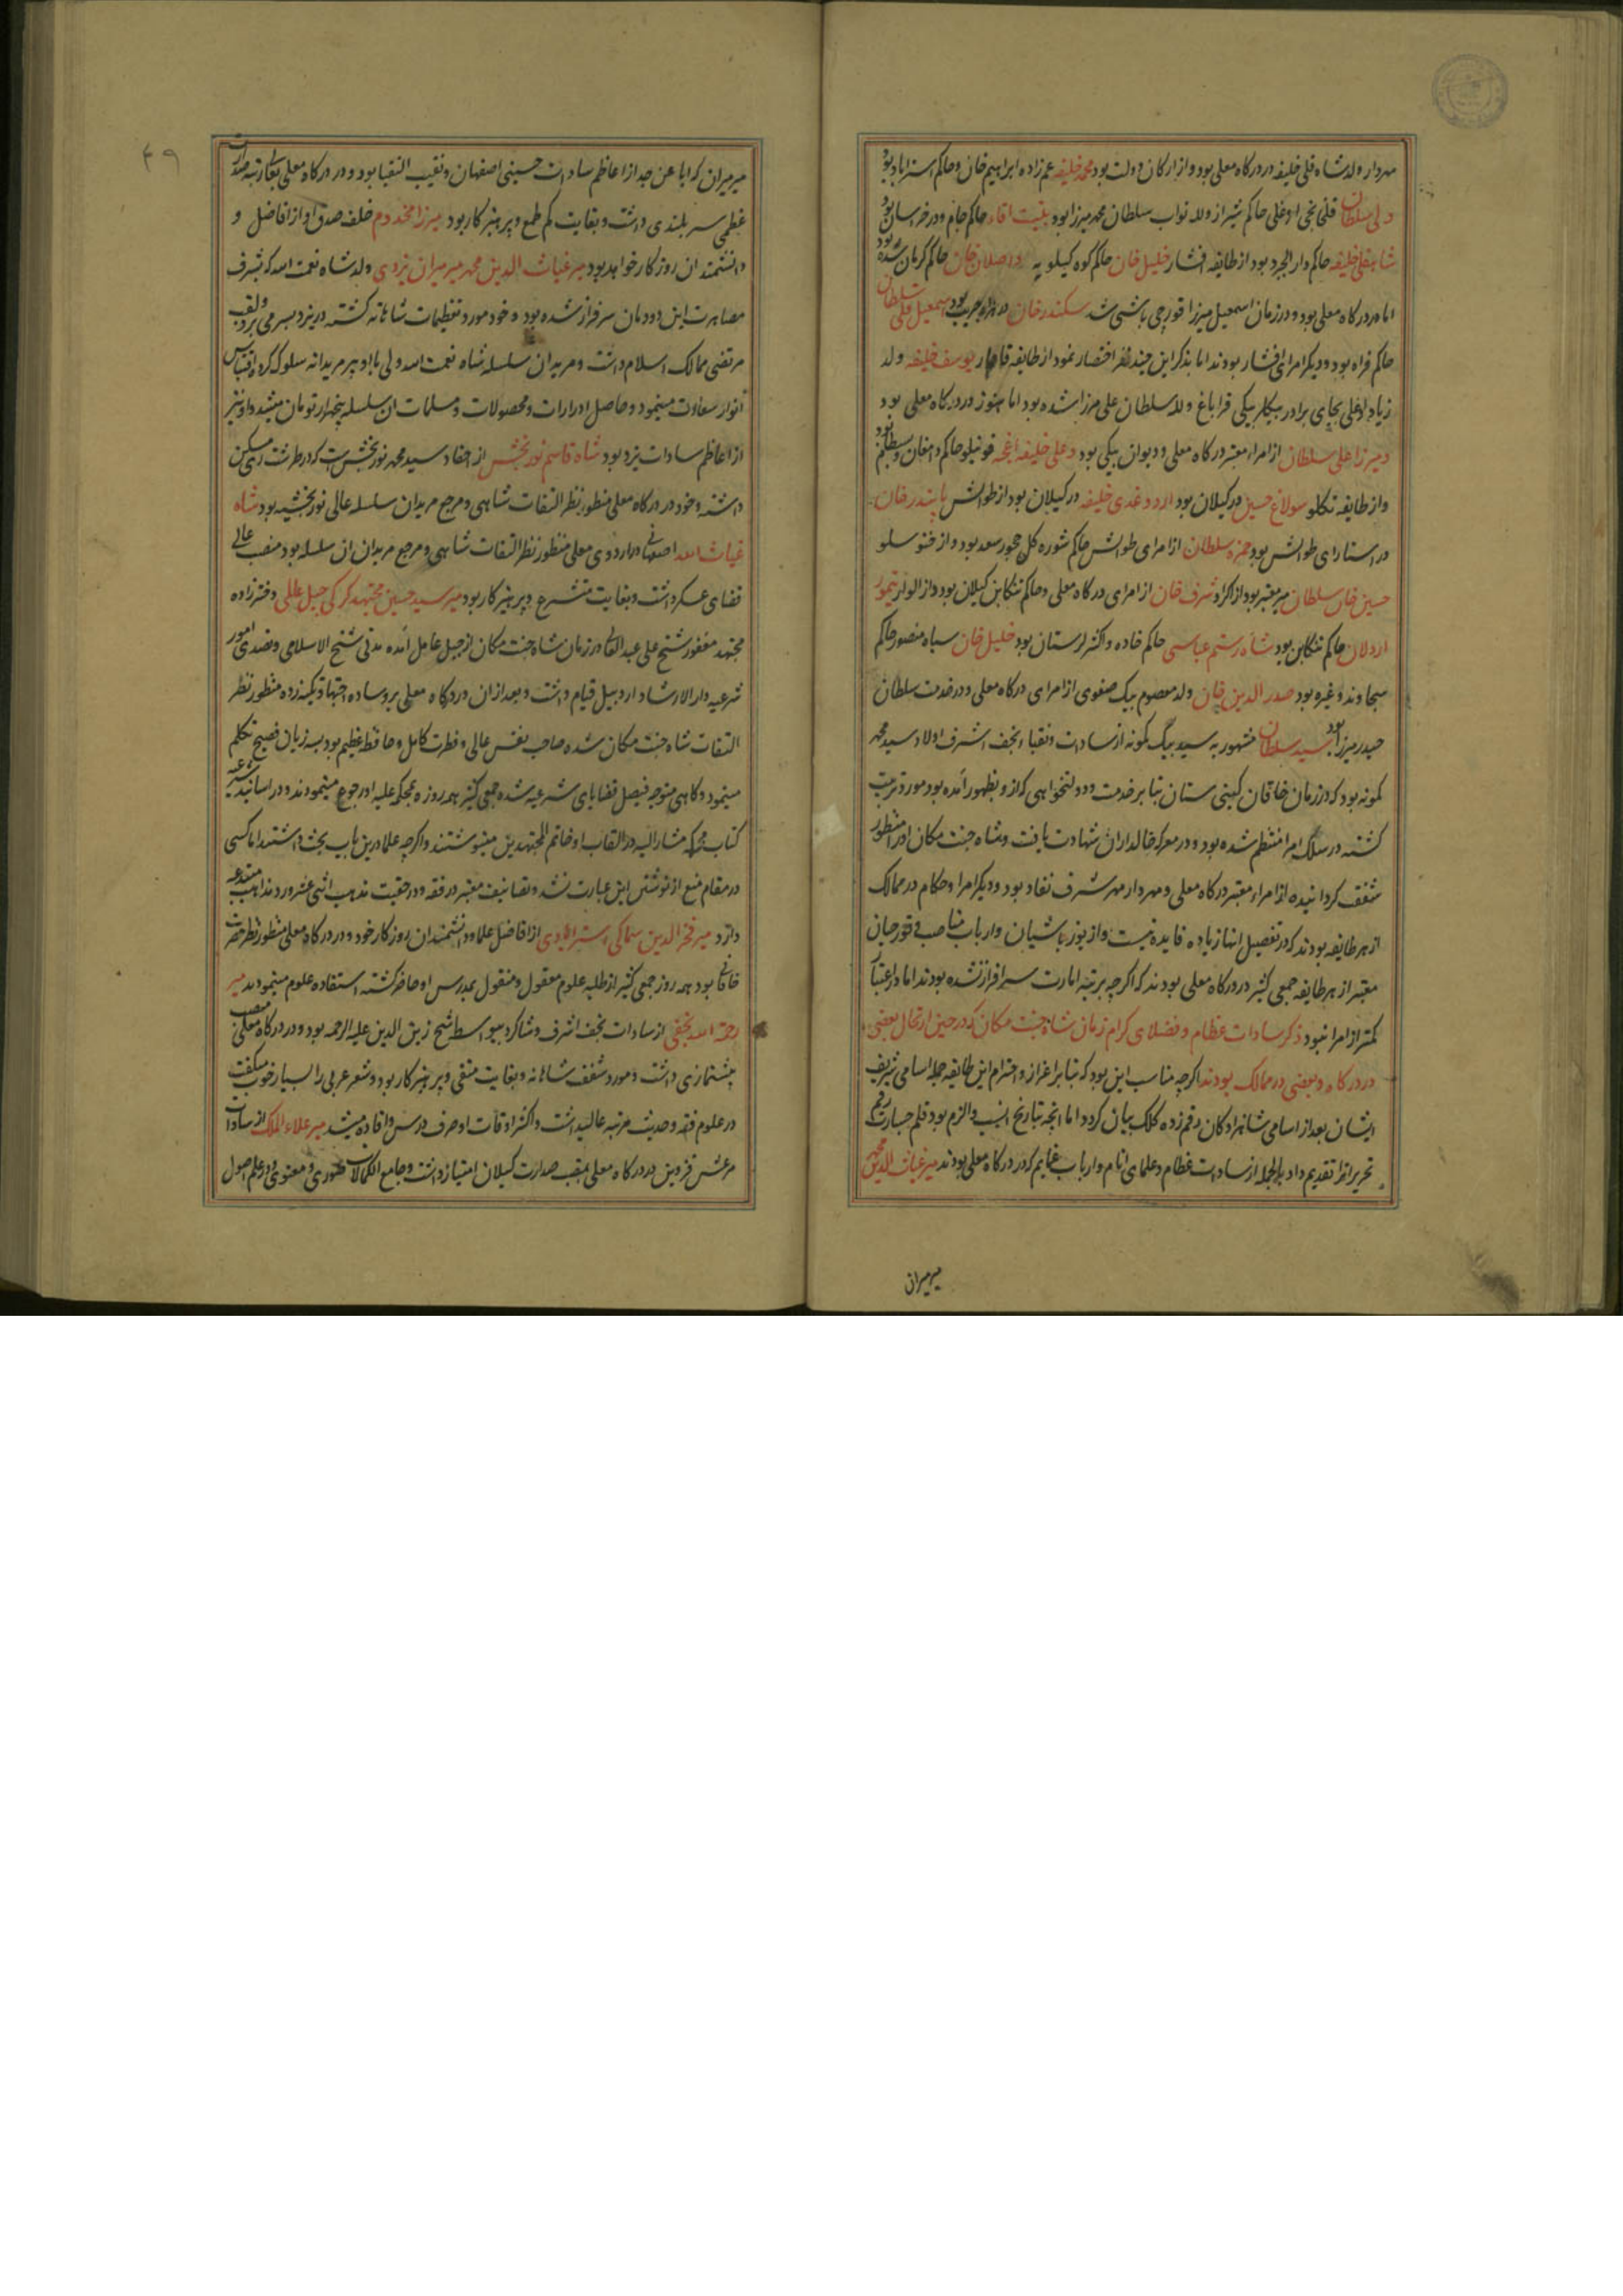 مهردار ولد شاه قلی خلیفه در درکاه معلی بود و از ارکان دولت بود محمد خلیفه عم زاده ابراهیم خان و حاکم استراباد بود
ولی سلطان قلخانچی اوغلی حاکم شیراز و لله نواب سلطان محمد میرزا بود بنیت اقا حاکم جام و در خراسان بود
شاهقلی خلیفه حاکم دارابجرد بود از طایفه افشار خلیل خان حاکم کوه کیلویه و اصلان خان حاکم کرمان شده بود
اما در درکاه معلی بود و در زمان اسمعیل میرزا قورچی باشی شد سکندر خان در هزارجریب بود اسمعیل قلی سلطان
حاکم فراه بود و دیکر امرای افشار بودند اما بذکر این چند نفر اختصار نمود از طایفه قاجار یوسف خلیفه ولد
زیاد اوغلی بجای برادر بیکلربیکی قراباغ و لله سلطان علی میرزا شده بود اما هنوز در درکاه معلی بود
و میرزا علی سلطان از امراء معتبر درکاه معلی و دیوان بیکی بود و علی خلیفه اغچه قوینلو حاکم دامغان و بسطام بود
و از طایفه تکلو سولاغ حسین در کیلان بود اردوغدی خلیفه در کیلان بود از طوالش بایندر خان
در استارای طوالش بود حمزه سلطان از امرای طوالش حاکم شوره کل چخور سعد بود و از خنوسلو
حسین خان سلطان میر معتبر بود از اکراد شرف خان از امرای درکاه معلی و حاکم تنکابن کیلان بود و از الوار تیمور
اردلان حاکم تنکابن بود شاه رستم عباسی حاکم خاده و اکثر لرستان بود خلیل خان سیاه منصور حاکم
سجاوند و غیره بود صدر الدین خان ولد معصوم بیک صفوی از امرای درکاه معلی و در خدمت سلطان
حیدر میرزا بود سید سلطان مشهور به سید بیک کمونه از سادات و نقباء نجف اشرف اولاد سید محمد
کمونه بود که در زمان خاقان کیتی ستان بنابر خدمت و دولتخواهی که از و بظهور آمده بود مورد تربیت
کشته در سلک امرا منتظم شده بود و در معرکه خالداران شهادت یافت و شاه جنت مکان او را منظور
شفقت کردانیده از امراء معتبر درکاه معلی و مهردار مهر شرف نفاد بود و دیکر امرا و حکام در ممالک
از هر طایفه بودند که در تفصیل انها زیاده فایده نیست و از یوزباشیان و ارباب مناصب و قورچیان
معتبر از هر طایفه جمعی کثیر در درکاه معلی بودند که اکرچه برتبه امارت سرافراز نشده بودند اما در اعتبار
کمتر از امرا نبود ذکر سادات عظام و فضلای کرام زمان شاه جنت مکان که در حین ارتحال بعضی
در درکاه و بعضی در ممالک بودند اکرچه مناسب این بود که بنابر اعزاز و احترام این طایفه جلیله اسامی شریف
ایشان بعد از اسامی شاهزادکان رقم زده کلک بیان کردد اما انچه بتاریخ انسب و الزم بود قلم جسارت رقم
تحریر انرا تقدیم داد بالجمله از سادات عظام و علمای انام و ارباب عمایم که در درکاه معلی بودند میر غیاث الدین محمد
میرمیران
۴۹
میرمیران که ابا عن جد از اعاظم سادات حسینی اصفهان و نقیب النقبا بود و در درکاه معلی بعالی رتبه صدارت
عظمی سر بلندی داشت و بغایت کم طمع و پرهیزکار بود میرزا مخدوم خلف صدق او از افاضل و
دانشمندان روزکار خواهد بود میر غیاث الدین محمد میرمیران یزدی ولد شاه نعمت الله که بشرف
مصاهرت این دودمان سرفراز شده بود و خود مورد تعظیمات شاهانه کشته در یزد بسر می برد و لقب
مرتضی ممالک اسلام داشت و مریدان سلسله شاه نعمت الله ولی با او پیر مریدانه سلوک کرده اقتباس
انوار سعادت مینمود و حاصل ادرارات و محصولات و مسلمات ان سلسله پنجهزار تومان میشد و او نیز
از اعاظم سادات یزد بود شاه قاسم نوربخش از احفاد سید محمد نوربخش است که در طرشت ری مسکن
داشته و خود در درکاه معلی منظور نظر التفات شاهی و مرجع مریدان سلسله عالی نوربخشیه بود شاه
غیاث الله اصفهانی در اردوی معلی منظور نظر التفات شاهی و مرجع مریدان ان سلسله بود منصب عالی
قضای عسکر داشت و بغایت متشرع و پرهیزکار بود میر سید حسین مجتهد کرکی جبل عاملی دختر زاده
مجتهد مغفور شیخ علی عبد العالی در زمان شاه جنت مکان از جبل عامل آمده مدتی شیخ الاسلامی و تصدی امور
شرعیه دار الارشاد اردبیل قیام داشت و بعد از ان در درکاه معلی بر وساده اجتهاد تکیه زده منظور نظر
التفات شاه جنت مکان شده صاحب نفس عالی و فطرت کامل و حافظه عظیم بود بسه زبان فصیح تکلم
مینمود و کاهی متوجه فیصل قضایای شرعیه شده جمعی کثیر همه روزه بمحکمه علیه او رجوع مینمودند و در اسانید شرعیه
کتاب محکمه مشار الیه در القاب او خاتم المجتهدین مینوشتند و اکرچه علما درین باب بحث داشتند اما کسی
در مقام منع از نوشتن این عبارت نشد و تصانیف معتبر در فقه و در حقیت مذهب اثنی عشر و رد مذاهب مبتدعه
دارد میر فخر الدین سماکی استرابادی از افاضل علما و دانشمندان روزکار خود و در درکاه معلی منظور نظر حضرت
خاقانی بود همه روز جمعی کثیر از طلبه علوم معقول و منقول بمدرس او حاضر کشته استفاده علوم مینمودند میر
رحمة الله نجفی از سادات نجف اشرف و شاکرد بیواسطه شیخ زین الدین علیه الرحمه بود و در درکاه معلی منصب
پیشنمازی داشت و مورد شفقت شاهانه و بغایت متقی و پرهیزکار بود و شعر عربی را بسیار خوب میکفت
در علوم فقه و حدیث مرتبه عالیه داشت و اکثر اوقات او صرف درس و افاده میشد میر علاء الملک از سادات
مرعش قزوین در درکاه معلی بمنصب صدارت کیلان امتیاز داشت و جامع الکمالات صوری و معنوی و در علم اصول